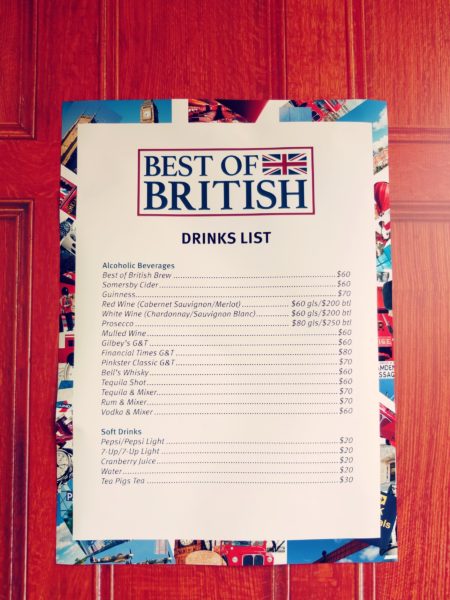 BEST OF
BRITISH
DRINKS LIST
Alcoholic Beverages
Best of British Brew $60
Somersby Cider $60
Guinness $70
Red Wine (Cabernet Sauvignon/Merlot) $60 gls/$200 btl
White Wine (Chardonnay/Sauvignon Blanc) $60 gls/$200 btl
Prosecco $80 gls/$250 btl
Mulled Wine $60
Gilbey's G&T $60
Financial Times G&T $80
Pinkster Classic G&T $70
Bell's Whisky $60
Tequila Shot $60
Tequila & Mixer $70
Rum & Mixer $70
Vodka & Mixer $60
Soft Drinks
Pepsi/Pepsi Light $20
7-Up/7-Up Light $20
Cranberry Juice $20
Water $20
Tea Pigs Tea $30